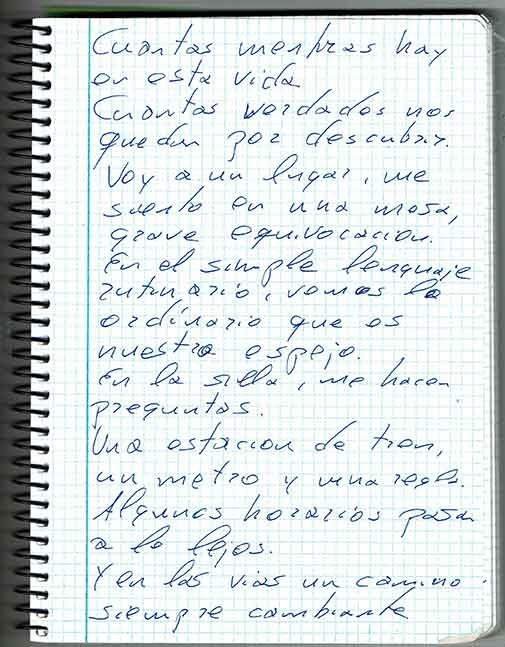 Cuantas mentiras hay
en esta vida
Cuantas verdades nos
quedan por descubrir.
Voy a un lugar, me
siento en una mesa,
grave equivocacion.
En el simple lenguaje
rutinario, vemos lo
ordinario que es
nuestro espejo.
En la silla, me hacen
preguntas.
Una estacion de tren,
un metro y una regla.
Algunos horarios pasan
a lo lejos.
Y en las vias un camino
siempre cambiante